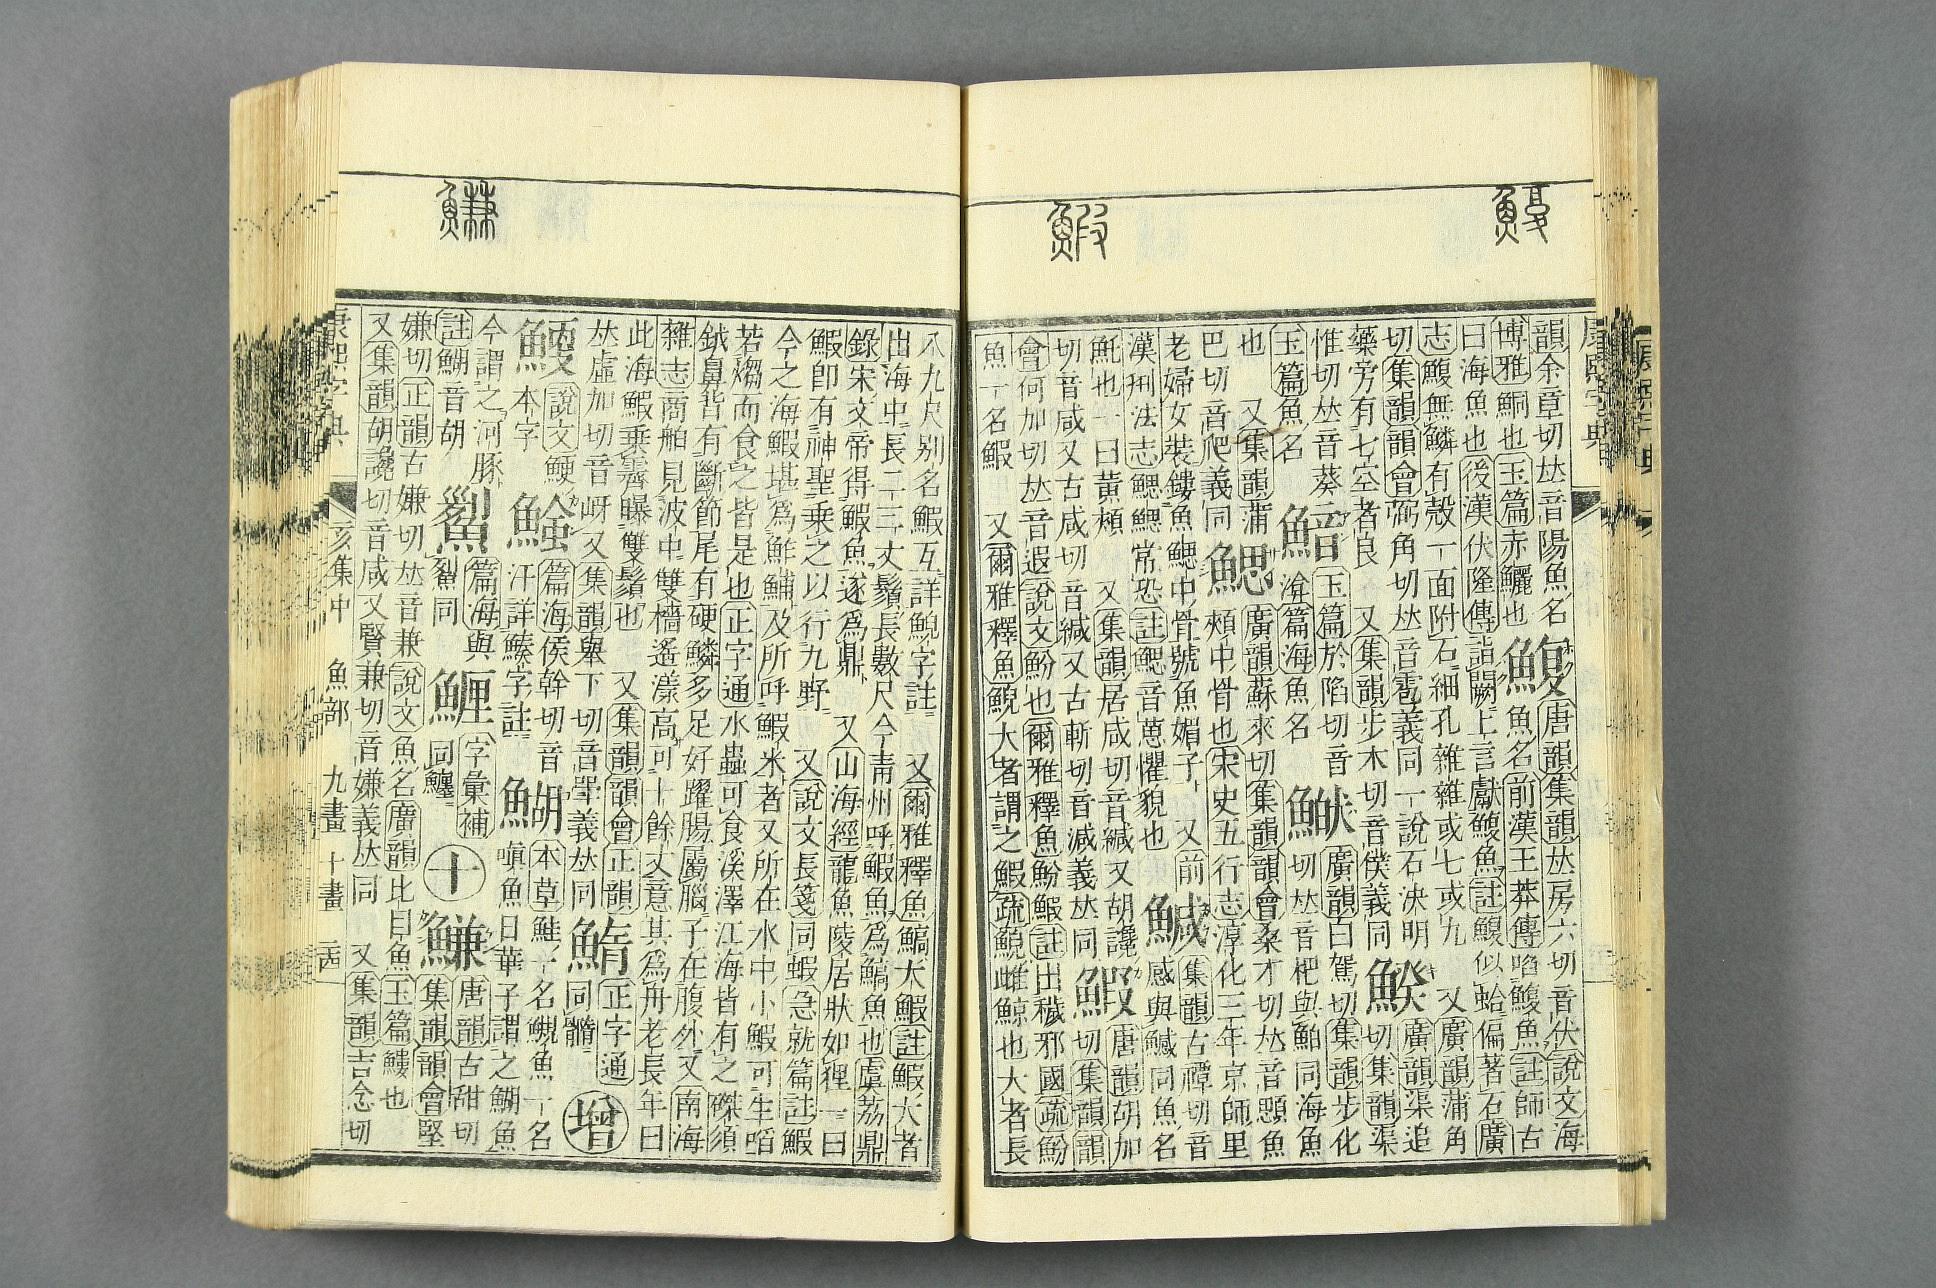 康熙字典
韻余章切𠀤音陽魚名 鰒 唐韻集韻𠀤房六切音伏說文海
博雅鮦也玉篇赤鱺也 魚名前漢王莽傳啗鰒魚註師古
曰海魚也後漢伏隆傳詣闕上言獻鰒魚註鰒似蛤偏著石廣
志鰒無鱗有殼一面附石細孔雜雜或七或九 又廣韻蒲角
切集韻韻會弼角切𠀤音雹義同一說石決明 廣韻渠追
藥旁有七空者良 又集韻步木切音僕義同 切集韻渠
惟切𠀤音葵 玉篇於陷切音 廣韻白駕切集韻步化
玉篇魚名 渰篇海魚名 切𠀤音杷與鮊同海魚
也 又集韻蒲 鰓 廣韻蘇來切集韻韻會桑才切𠀤音顋魚
巴切音爬義同 頰中骨也宋史五行志淳化三年京師里
老婦女裝鏤魚鰓中骨號魚媚子 又前 鰔 集韻古禫切音
漢刑法志鰓鰓常恐註鰓音葸懼貌也 感與鱤同魚名
也一曰黃頰 又集韻居咸切音緘又胡讒 鰕 唐韻胡加
切音咸又古咸切音緘又古斬切音減義𠀤同 切集韻韻
會何加切𠀤音遐說文魵也爾雅釋魚魵鰕註出穢邪國疏魵
魚一名鰕 又爾雅釋魚鯢大者謂之鰕疏鯢雌鯨也大者長
八九尺別名鰕互詳鯢字註 又爾雅釋魚鰝大鰕註鰕大者
出海中長二三丈鬚長數尺今靑州呼鰕魚爲鰝魚也虞荔鼎
錄宋文帝得鰕魚遂爲鼎 又山海經龍魚陵居狀如狸一曰
鰕卽有神聖乗之以行九野 又說文長箋同蝦急就篇註鰕
今之海鰕堪爲鮓鯆及所呼鰕米者又所在水中小鰕可生啗
若𤏶而食之皆是也正字通水蟲可食溪澤江海皆有之磔須
鉞鼻背有斷節尾有硬鱗多足好躍腸屬腦子在腹外又南海
雜志商舶見波中雙檣遙漾高可十餘丈意其爲舟老長年曰
此海鰕乗霽曝雙鬚也 又集韻韻會正韻
𠀤虛加切音岈又集韻舉下切音斝義𠀤同 增
鯾 說文鯁 篇海侯幹切音 正字通
本字 汗詳鰊字註 同鰖
今謂之河豚 篇海與 鰗 本草鮭一名鯢魚一名
註鰗音胡 鮤同 嗔魚日華子謂之鰗魚
字彙補 十 鰜 唐韻古甜切
同鱷 集韻韻會堅
嫌切正韻古嫌切𠀤音兼說文魚名廣韻比目魚玉篇鰜也
又集韻胡讒切音咸又賢兼切音嫌義𠀤同 又集韻吉念切
康熙字典 亥集中 魚部 九畫 十畫